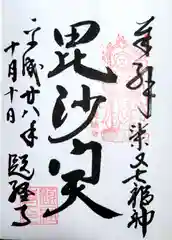 奉拝
柴又七福神
毘沙門天
平成廿八年
十月十日
題経寺